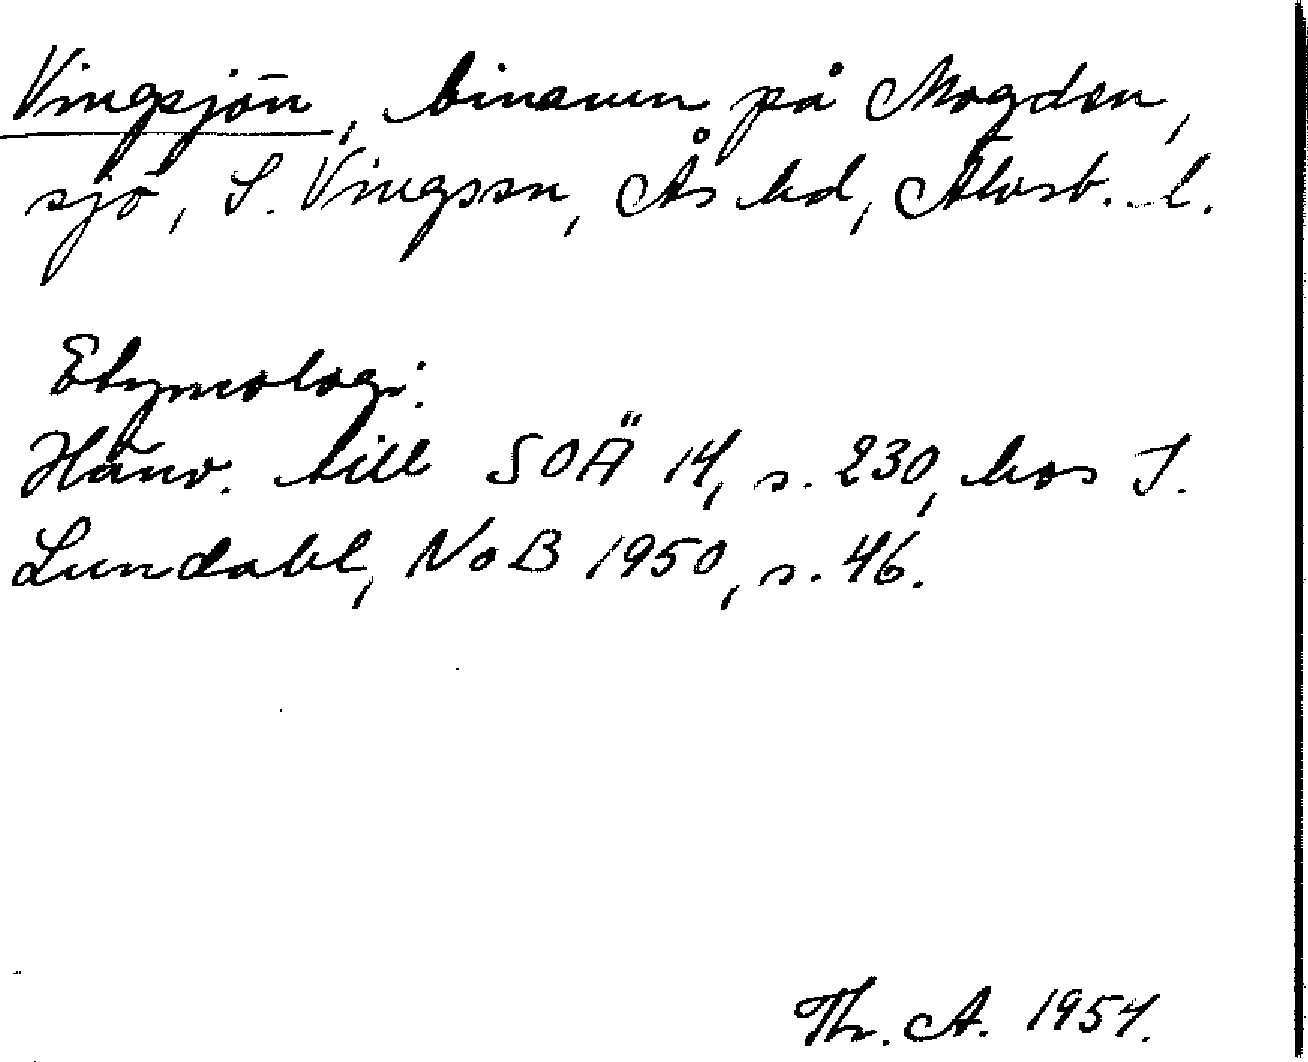 Vingsjön, binamn på Mogden,
sjö, S. Vingson, Ås hd, Älvsb. l.
Etymologi:
Hänv. till SOÄ 14, s. 230, hos I.
Lundahl, NoB 1950, s. 46.
Th. A. 1954.